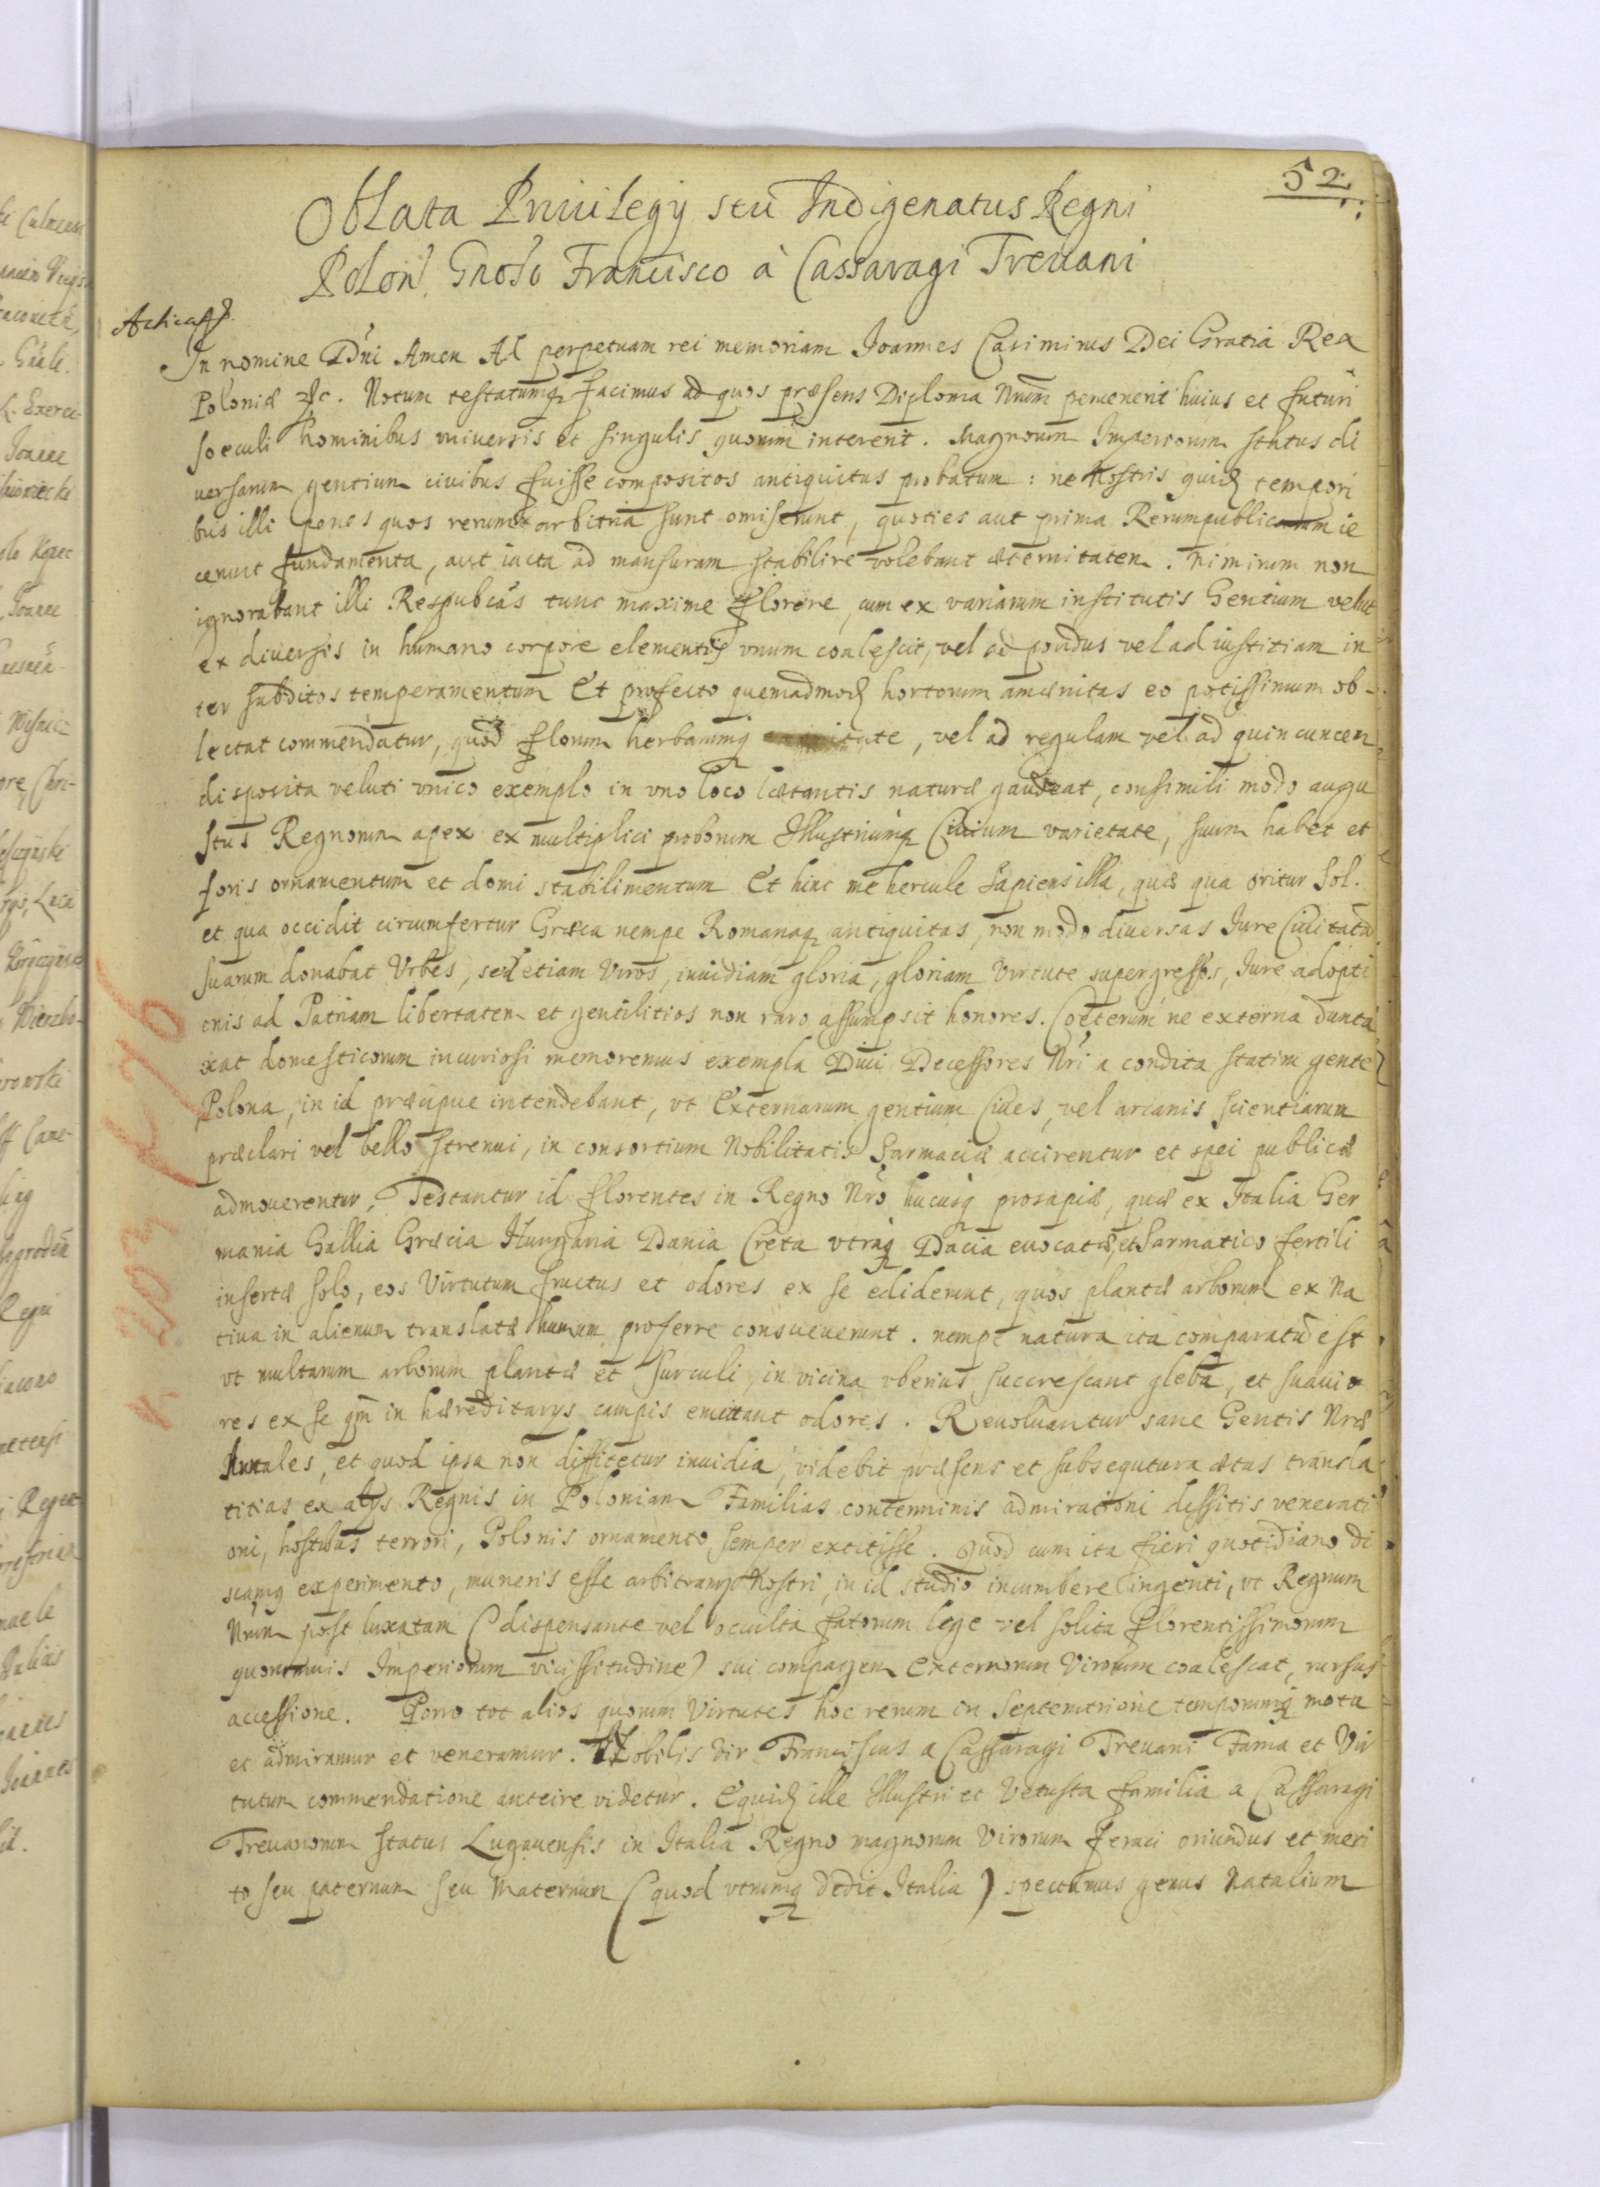 52
Oblata Priuilegij seu Indigenatus Regni
Polon. Gnoso Francisco à Cassaragi Treuani
In nomine Dni Amen Ad perpetuam rei memoriam Joannes Casimirus Dei Gratia Rex
Poloniæ &c. Notum testatumq facimus ad quos præsens Diploma Nrum peruenerit huius et futuri
soeculi hominibus vniuersis et singulis quorum intererit. Magnorum Imperiorum status di
uersarum gentium ciuibus fuisse compositos antiquitus probatum: ne Nostris quid tempori
bus illi penes quos rerum arbitria sunt omiserunt, quoties aut prima Rerumpublicarum ie
cerunt fundamenta, aut iacta ad mansuram stabilire volebant æternitatem. Nimirum non
ignorabant illi Respublcas tunc maxime florere, cum ex variarum institutis Gentium velut
ex diuersis in humano corpore elementis vnum coalescit, vel ad pondus vel ad iustitiam in
ter subditos temperamentum Et profecto quemadmod hortorum amænitas eo potissimum ob-
lectat commendatur, quod florum herbarumq, vel ad regulam vel ad quincuncem
disposita veluti vnico exemplo in vno loco lætantis naturæ gaudeat, consimili modo augu
stus Regnorum apex ex multiplici proborum Illustriumq Ciuium varietate, suum habet et
foris ornamentum et domi stabilimentum Et hinc me hercule sapiens illa, quæ qua oritur Sol.
et qua occidit circumfertur Græca nempe Romanaq antiquitas, non modo diuersas Jure Ciuitatu
suarum donabat Vrbes, sed etiam Viros, inuidiam gloria, gloriam Virtute supergressos, Jure adopti
onis ad Patriam libertatem et gentilitios non raro assumpsit honores. Coeterum ne externa dunta
xat domesticorum incuriosi memoremus exempla Diui Decessores Nri a condita statim gente
Polona, in id præcipue intendebant, vt Externarum gentium Ciues, vel arcanis scientiarum
præclari vel bello strenui, in consortium Nobilitatis Sarmaciæ accirentur et spei publicæ
admouerentur, Testantur id florentes in Regno Nro hucusq prosapiæ, quæ ex Italia Ger
mania Gallia Græcia Hungaria Dania Creta vtraq Dacia euocatæ, et Sarmatico fertili
insertæ solo, eos Virtutum fructus et odores ex se ediderunt, quos plantæ arborum ex Na
tiua in alienum translatæ humum proferre consueuerunt. nempe natura ita comparatu est
vt multarum arborum plantæ et surculi, in vicina vberius succrescant gleba, et suauio
res ex se qm in hæreditarys campis emittant odores. Reuoluantur sane Gentis Nræ
Annales, et quod ipsa non diffitetur inuidia, videbit præsens et subsequtura ætas transla
titias ex alys Regnis in Poloniam Familias conterminis admirationi dissitis venerati
oni, hostibus terrori, Polonis ornamento semper extitisse. Quod cum ita fieri quotidiano di
scamq experimento, muneris esse arbitramq Nostri, in id studio incumbere ingenti, vt Regnum
Nrum post luxatam (dispensante vel occulta fatorum lege vel solita florentissimorum
quorumuis Imperiorum vicissitudine) sui compagem Externorum Virorum coalescat, rursus
accessione. Porro tot alios quorum Virtutes hoc rerum in Septemtrione temporumq motu
et admiramur et veneramur. Nobilis Vir Franciscus a Cassaragi Treuani Fama et Vir
tutum commendatione anteire videtur. Equid ille Illustri et Vetusta familia a Cassaragi
Treuanorum status Luganensis in Italia Regno magnorum Virorum feraci oriundus et meri
to seu paternum seu Maternum (quod vtrumq dedit Italia) spectamus genus Natalium